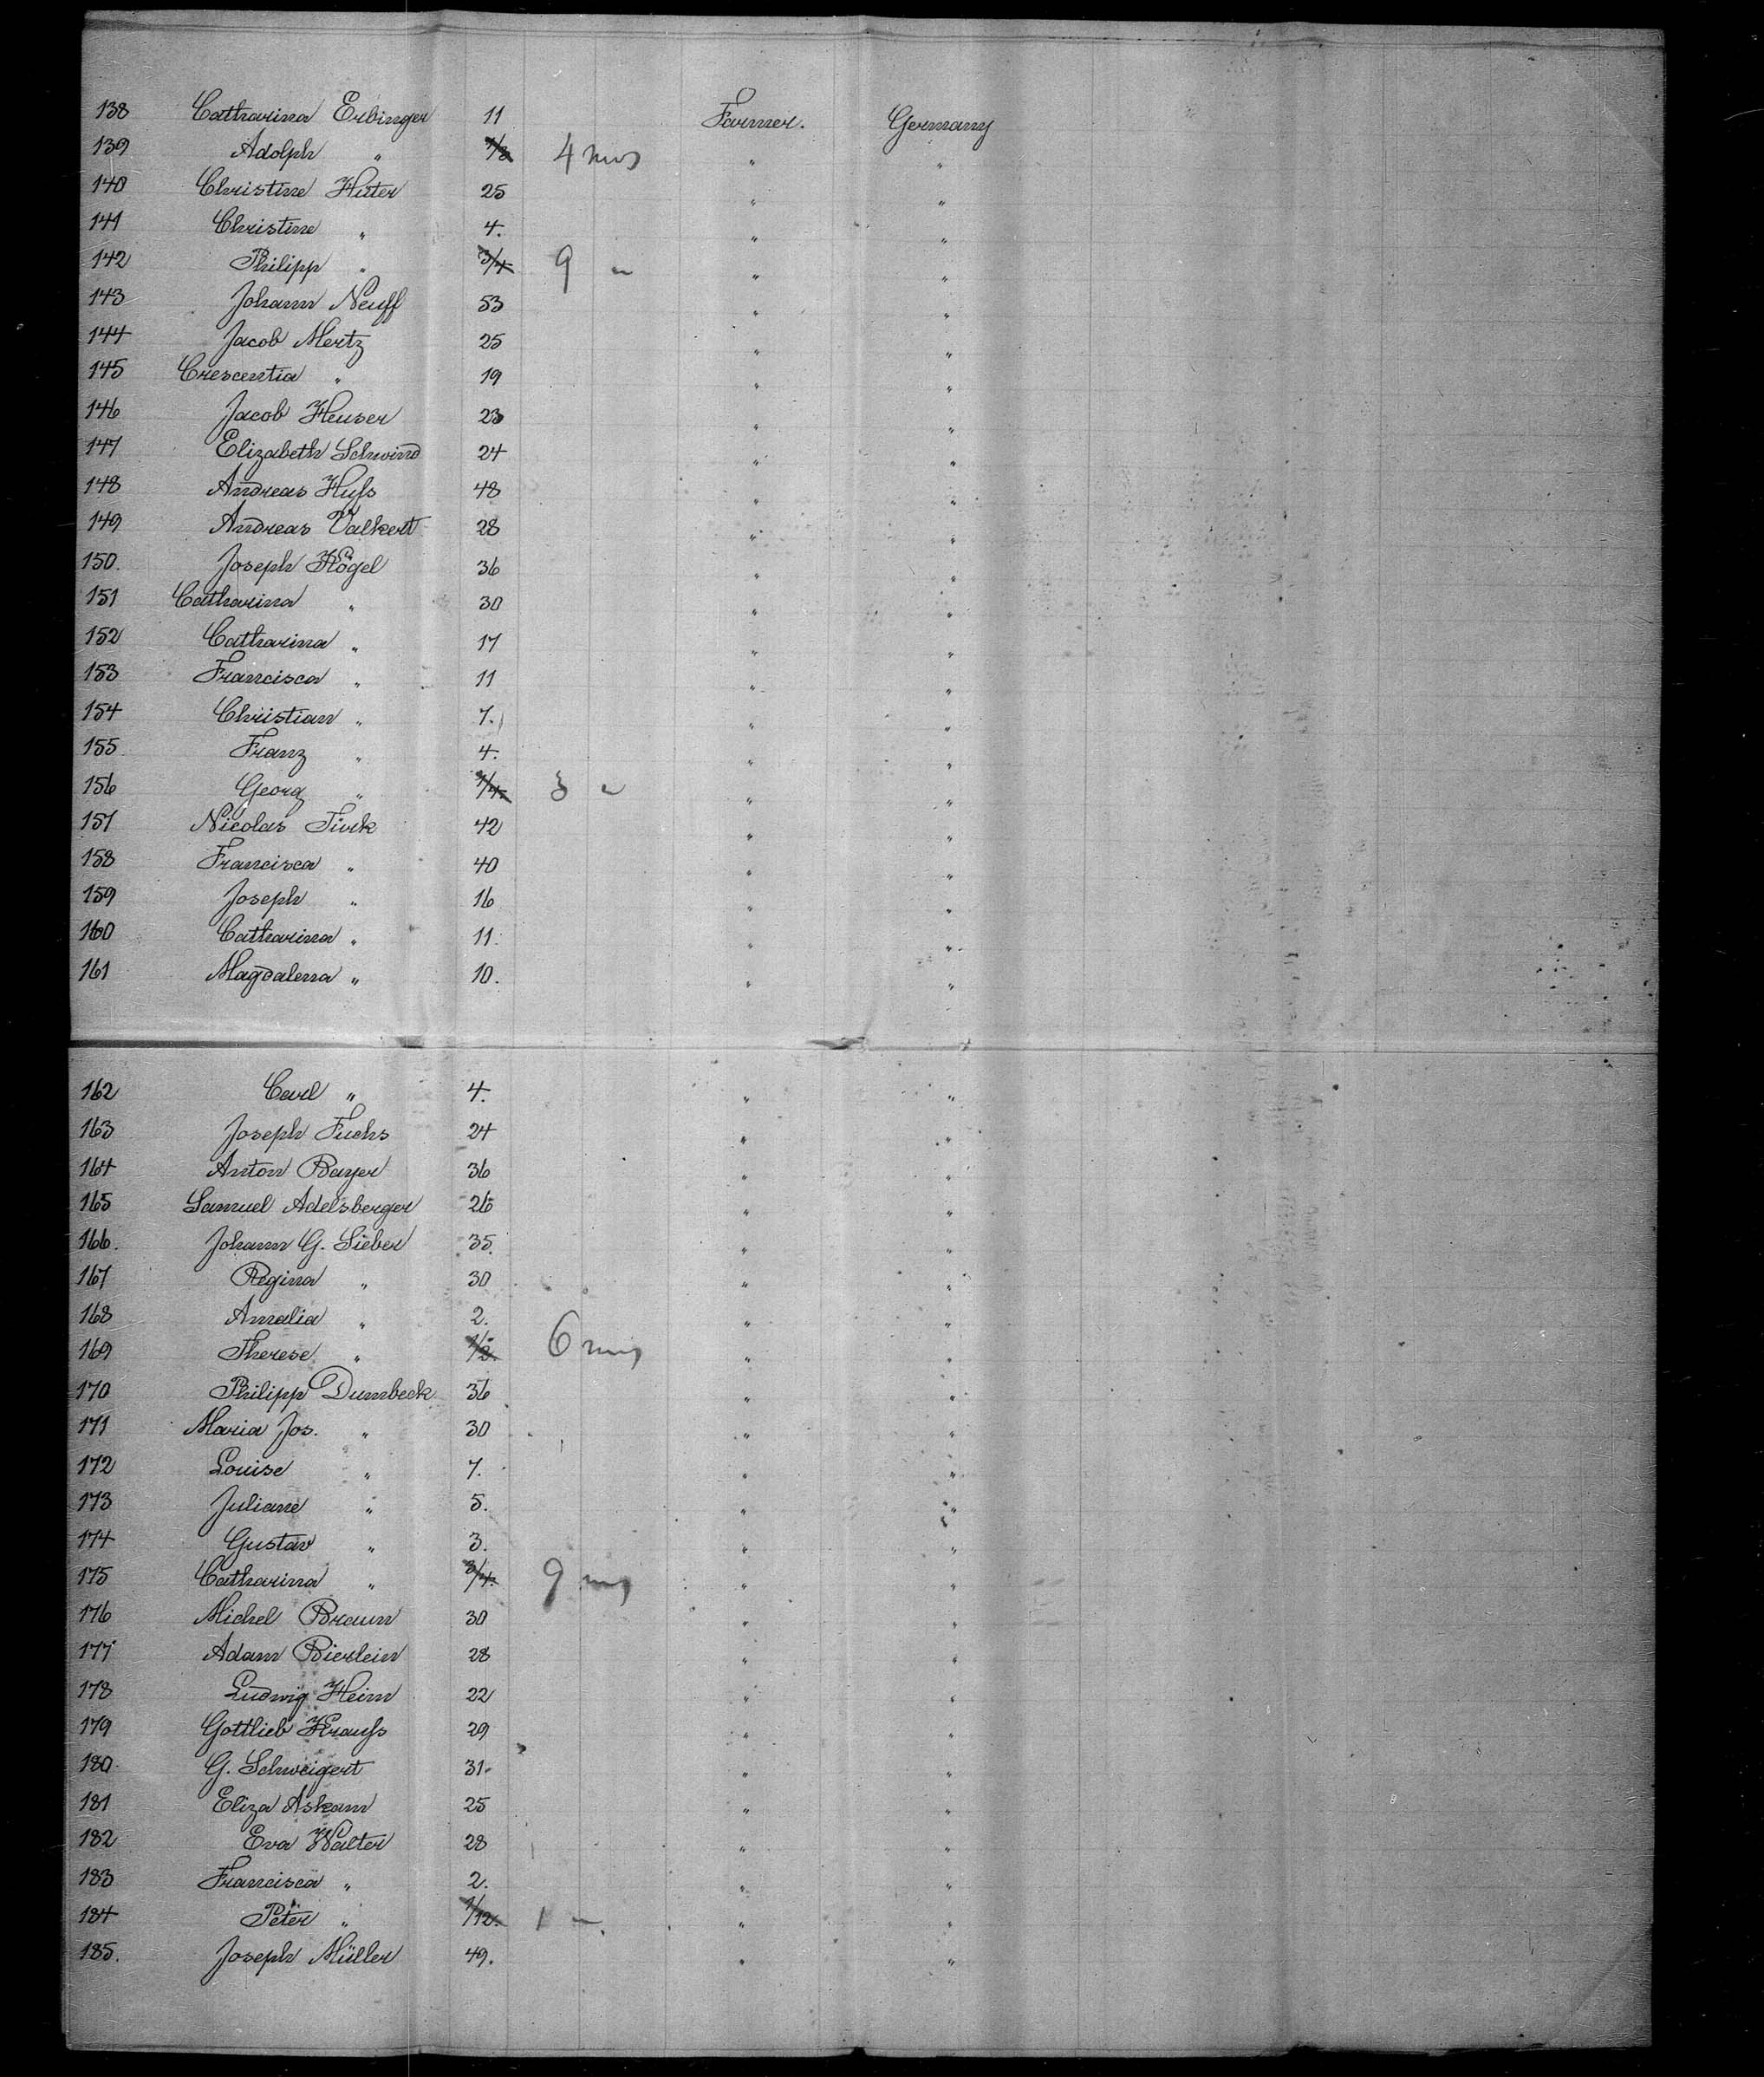 138 Catharina Erbinger 11 Farmer. Germany
139 Adolph " 1/3 4 mos " "
140 Christine Huter 25 " "
141 Christine " 4. " "
142 Philipp " 3/4 9 " " "
143 Johann Neuff 53 " "
144 Jacob Mertz 25 " "
145 Crescentia " 19 " "
146 Jacob Heuser 23 " "
147 Elizabeth Schwind 24 " "
148 Andreas Hufs 48 " "
149 Andreas Valkert 28 " "
150. Joseph Kögel 36 " "
151 Catharina " 30 " "
152 Catharina " 17 " "
153 Francisca " 11 " "
154 Christian " 7. " "
155 Franz " 4. " "
156 Georg " 1/4. 3 " " "
157 Nicolas Türk 42 " "
158 Francisca " 40 " "
159 Joseph " 16 " "
160 Catharina " 11. " "
161 Magdalena " 10. " "
162 Carl " 4. " "
163 Joseph Fuchs 24 " "
164 Anton Bayer 36 " "
165 Samuel Adelsberger 26 " "
166. Johann G. Sieber 35. " "
167 Regina " 30 " "
168 Amalia " 2. " "
169 Therese " 1/2. 6 mos " "
170 Philipp Dumbeck 36 " "
171 Maria Jos. " 30 " "
172 Louise " 7. " "
173 Juliane " 5. " "
174 Gustav " 3. " "
175 Catharina " 3/4. 9 mos " "
176 Michel Braun 30 " "
177 Adam Bierlein 28 " "
178 Ludwig Heim 22 " "
179 Gottlieb Kraufs 29 " "
180. G. Schweigert 31. " "
181 Eliza Askam 25 " "
182 Eva Walter 28 " "
183 Francisca " 2. " "
184 Peter " 1/12. 1 " " "
185. Joseph Müller 49. " "